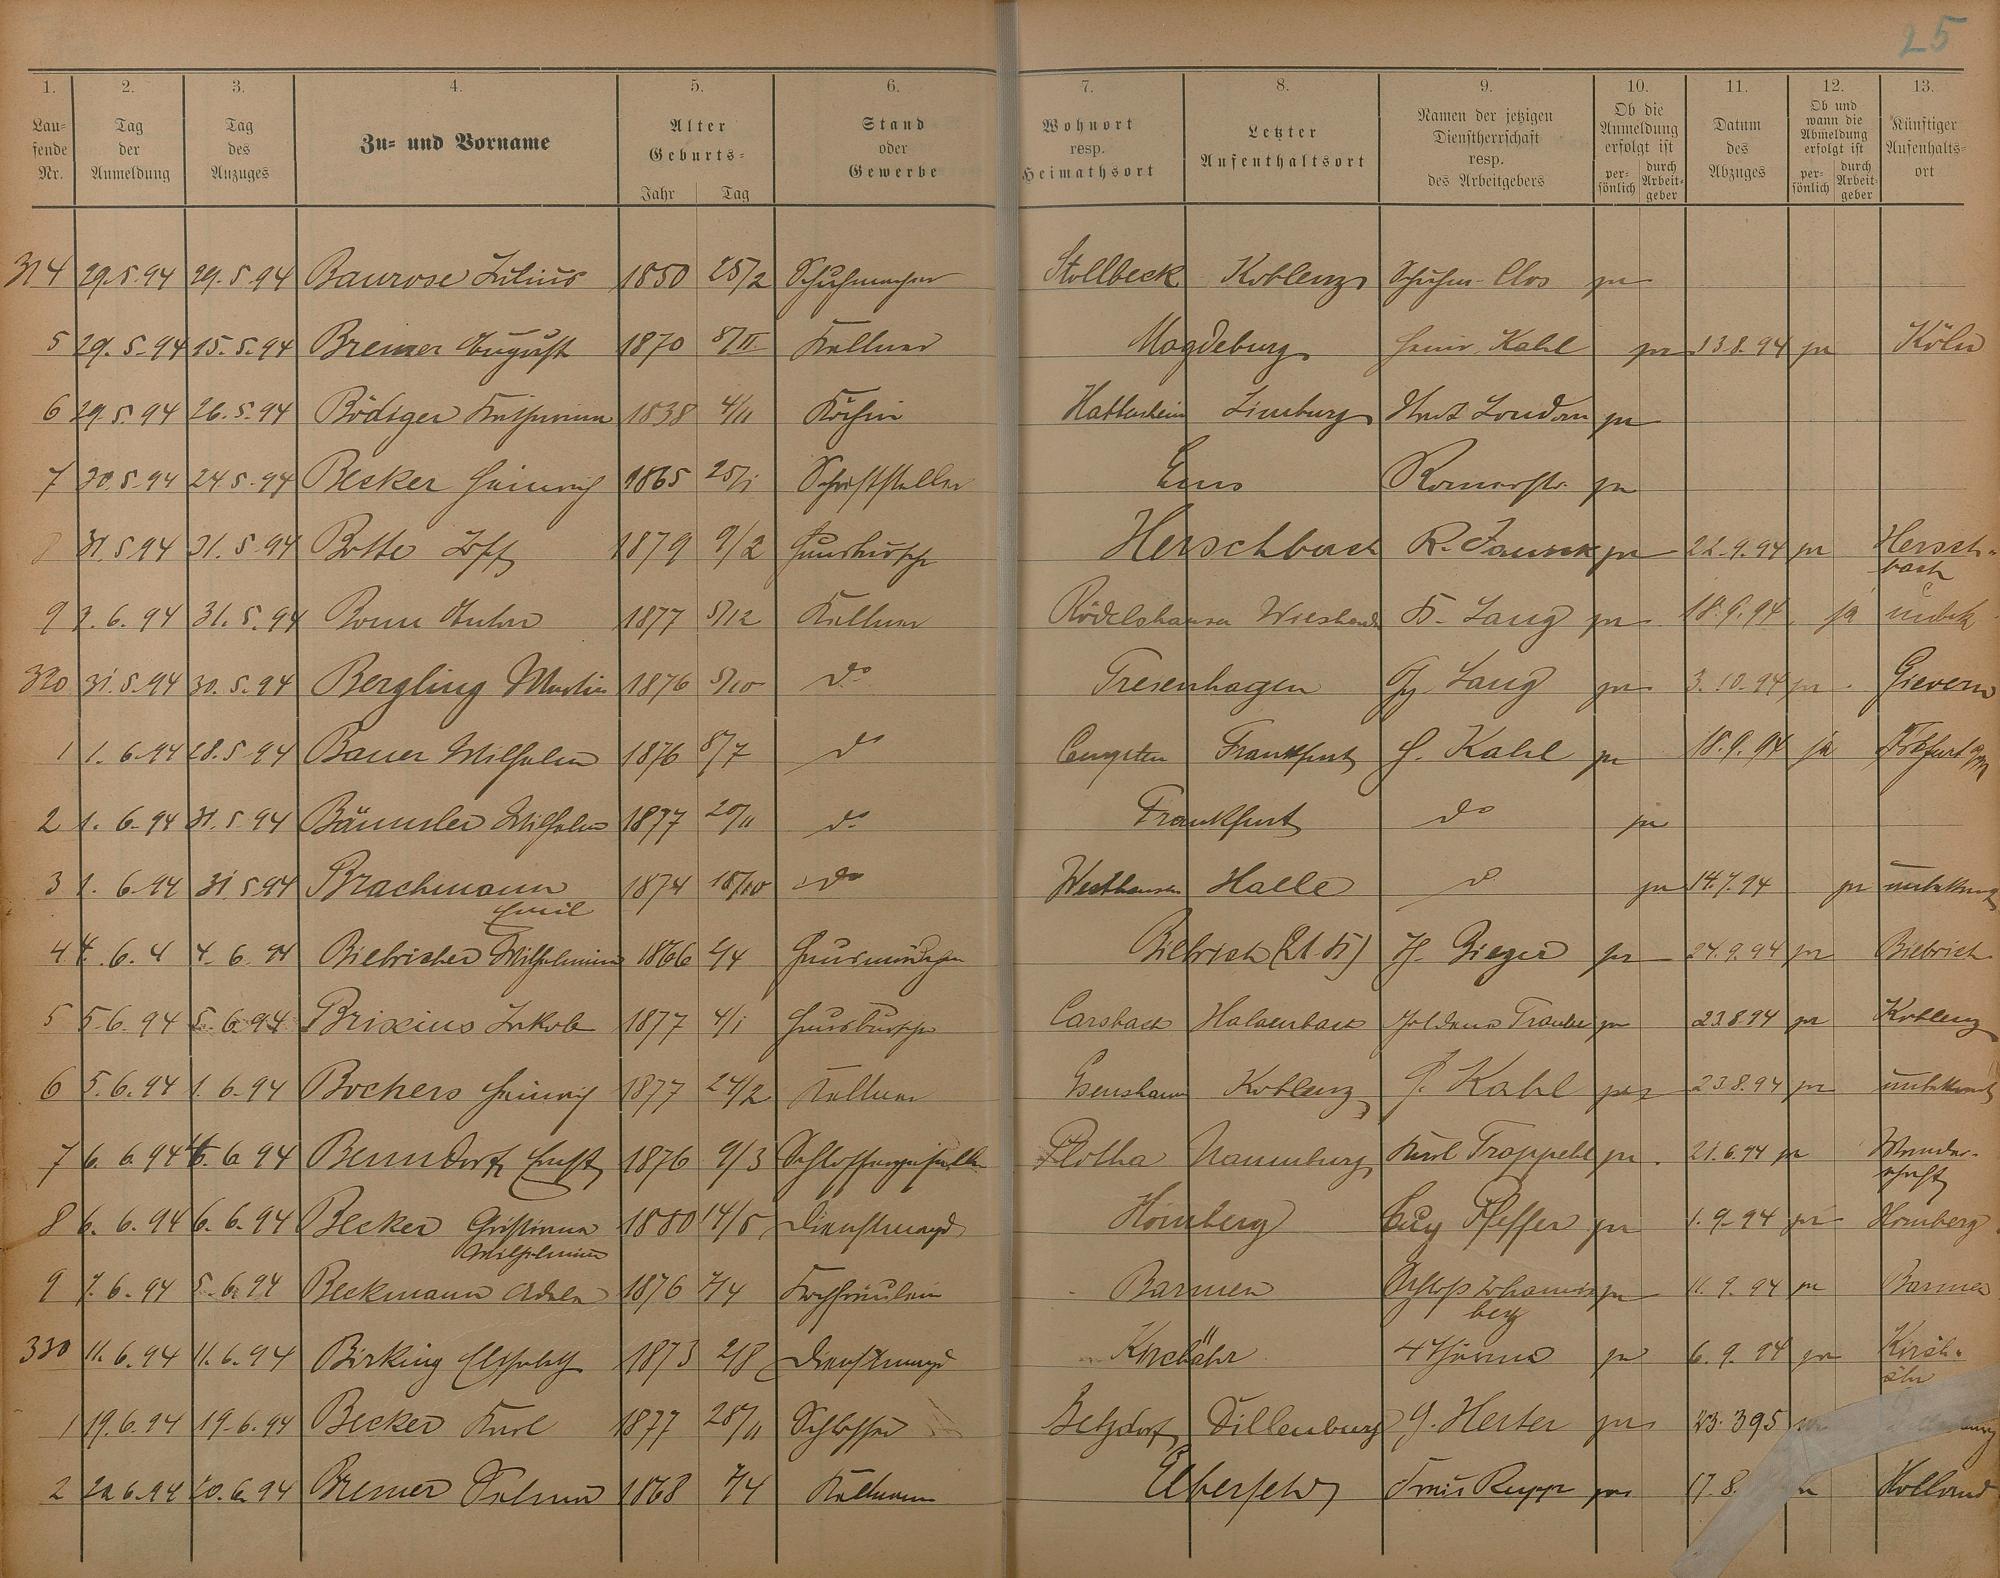 25
1. 2. 3. 4. 5. 6. 7. 8. 9. 10. 11. 12. 13.
Lau-fende Nr. Tag der Anmeldung Tag des Anzuges Zu- und Vorname Alter Geburts- Jahr Tag Stand oder Gewerbe Wohnort resp. Heimathsort Letzter Aufenthaltsort Namen der jetzigen Dienstherrschaft resp. des Arbeitgebers Ob die Anmeldung erfolgt ist per-sönlich durch Arbeit-geber Datum des Abzuges Ob und wann die Abmeldung erfolgt ist per-sönlich durch Arbeit-geber Künftiger Aufenthalts-ort
314 29.5.94 29.5.94 Baurose Julius 1850 25/2 Schuhmacher Stollbeck Koblenz Schuhm. Clos ja
5 29.5.94 15.5.94 Bremer August 1870 8/II Kellner Magdeburg Heinr. Kahl ja 13.8.94 ja Köln
6 29.5.94 26.5.94 Bödiger Katharina 1838 4/11 Köchin Hattersheim Limburg ja
7 30.5.94 24.5.94 Becker Heinrich 1865 25/1 Schriftsteller Ems Römerstr. ja
8 31.5.94 31.5.94 Botte 1879 9/2 Hausbursche Herschbach ja 22.9.94 ja Hersch-
bach
9 2.6.94 31.5.94 Anton 1877 5/12 Kellner Rödelshausen Wiesbaden Lang ja 18.9.94 ja unbek
320 31.5.94 30.5.94 Bergling Martin 1876 5/10 do Tresenhagen Lang ja 3.10.94 ja Gievern
1 1.6.94 28.5.94 Bauer Wilhelm 1876 8/7 do Frankfurt H. Kahl ja 18.9.94 ja Frkfurt a/M
2 1.6.94 31.5.94 Bäumler Wilhelm 1877 20/11 do Frankfurt do ja
3 1.6.94 31.5.94 Brachmann 1874 18/10 do Westhausen Halle do ja 14.7.94 ja unbekannt
Emil
4 4.6.4 4.6.94 Biebricher Wilhelmine 1866 2/4 Hausmädchen Biebrich H. Gieger ja 24.9.94 ja Biebrich
5 5.6.94 5.6.94 Brixius Jakob 1877 4/1 Hausbursche Carsbach Goldene Traube ja 23.8.94 ja Koblenz
6 5.6.94 1.6.94 Bochers Heinrich 1877 24/2 Kellner Koblenz H. Kahl ja 23.8.94 ja unbekannt
7 6.6.94 6.6.94 Benndorf Ernst 1876 9/3 Schlossergeselle Plotha Naumburg Karl Trappehl ja 21.6.94 ja Wander-
schaft
8 6.6.94 6.6.94 Becker Christiana 1880 14/5 Dienstmagd Homberg Pfeffer ja 1.9.94 ja Homberg
Wilhelmine
9 7.6.94 5.6.94 Beckmann Adele 1876 7/4 Kochfräulein Barmen Schloss Johannis ja 11.9.94 ja Barmen
berg
330 11.6.94 11.6.94 Birking Elisabeth 1873 2/8 Dienstmagd Kirchähr 4 Thürme ja 6.9.94 ja Kirch-
ähr
1 19.6.94 19.6.94 Becker Karl 1877 28/11 Schlosser Betzdorf Dillenburg G. Herter ja 23.3.95
2 20.6.94 20.6.94 Bremer 1868 7/4 Elberfeld Rupp ja 17.8. Holland